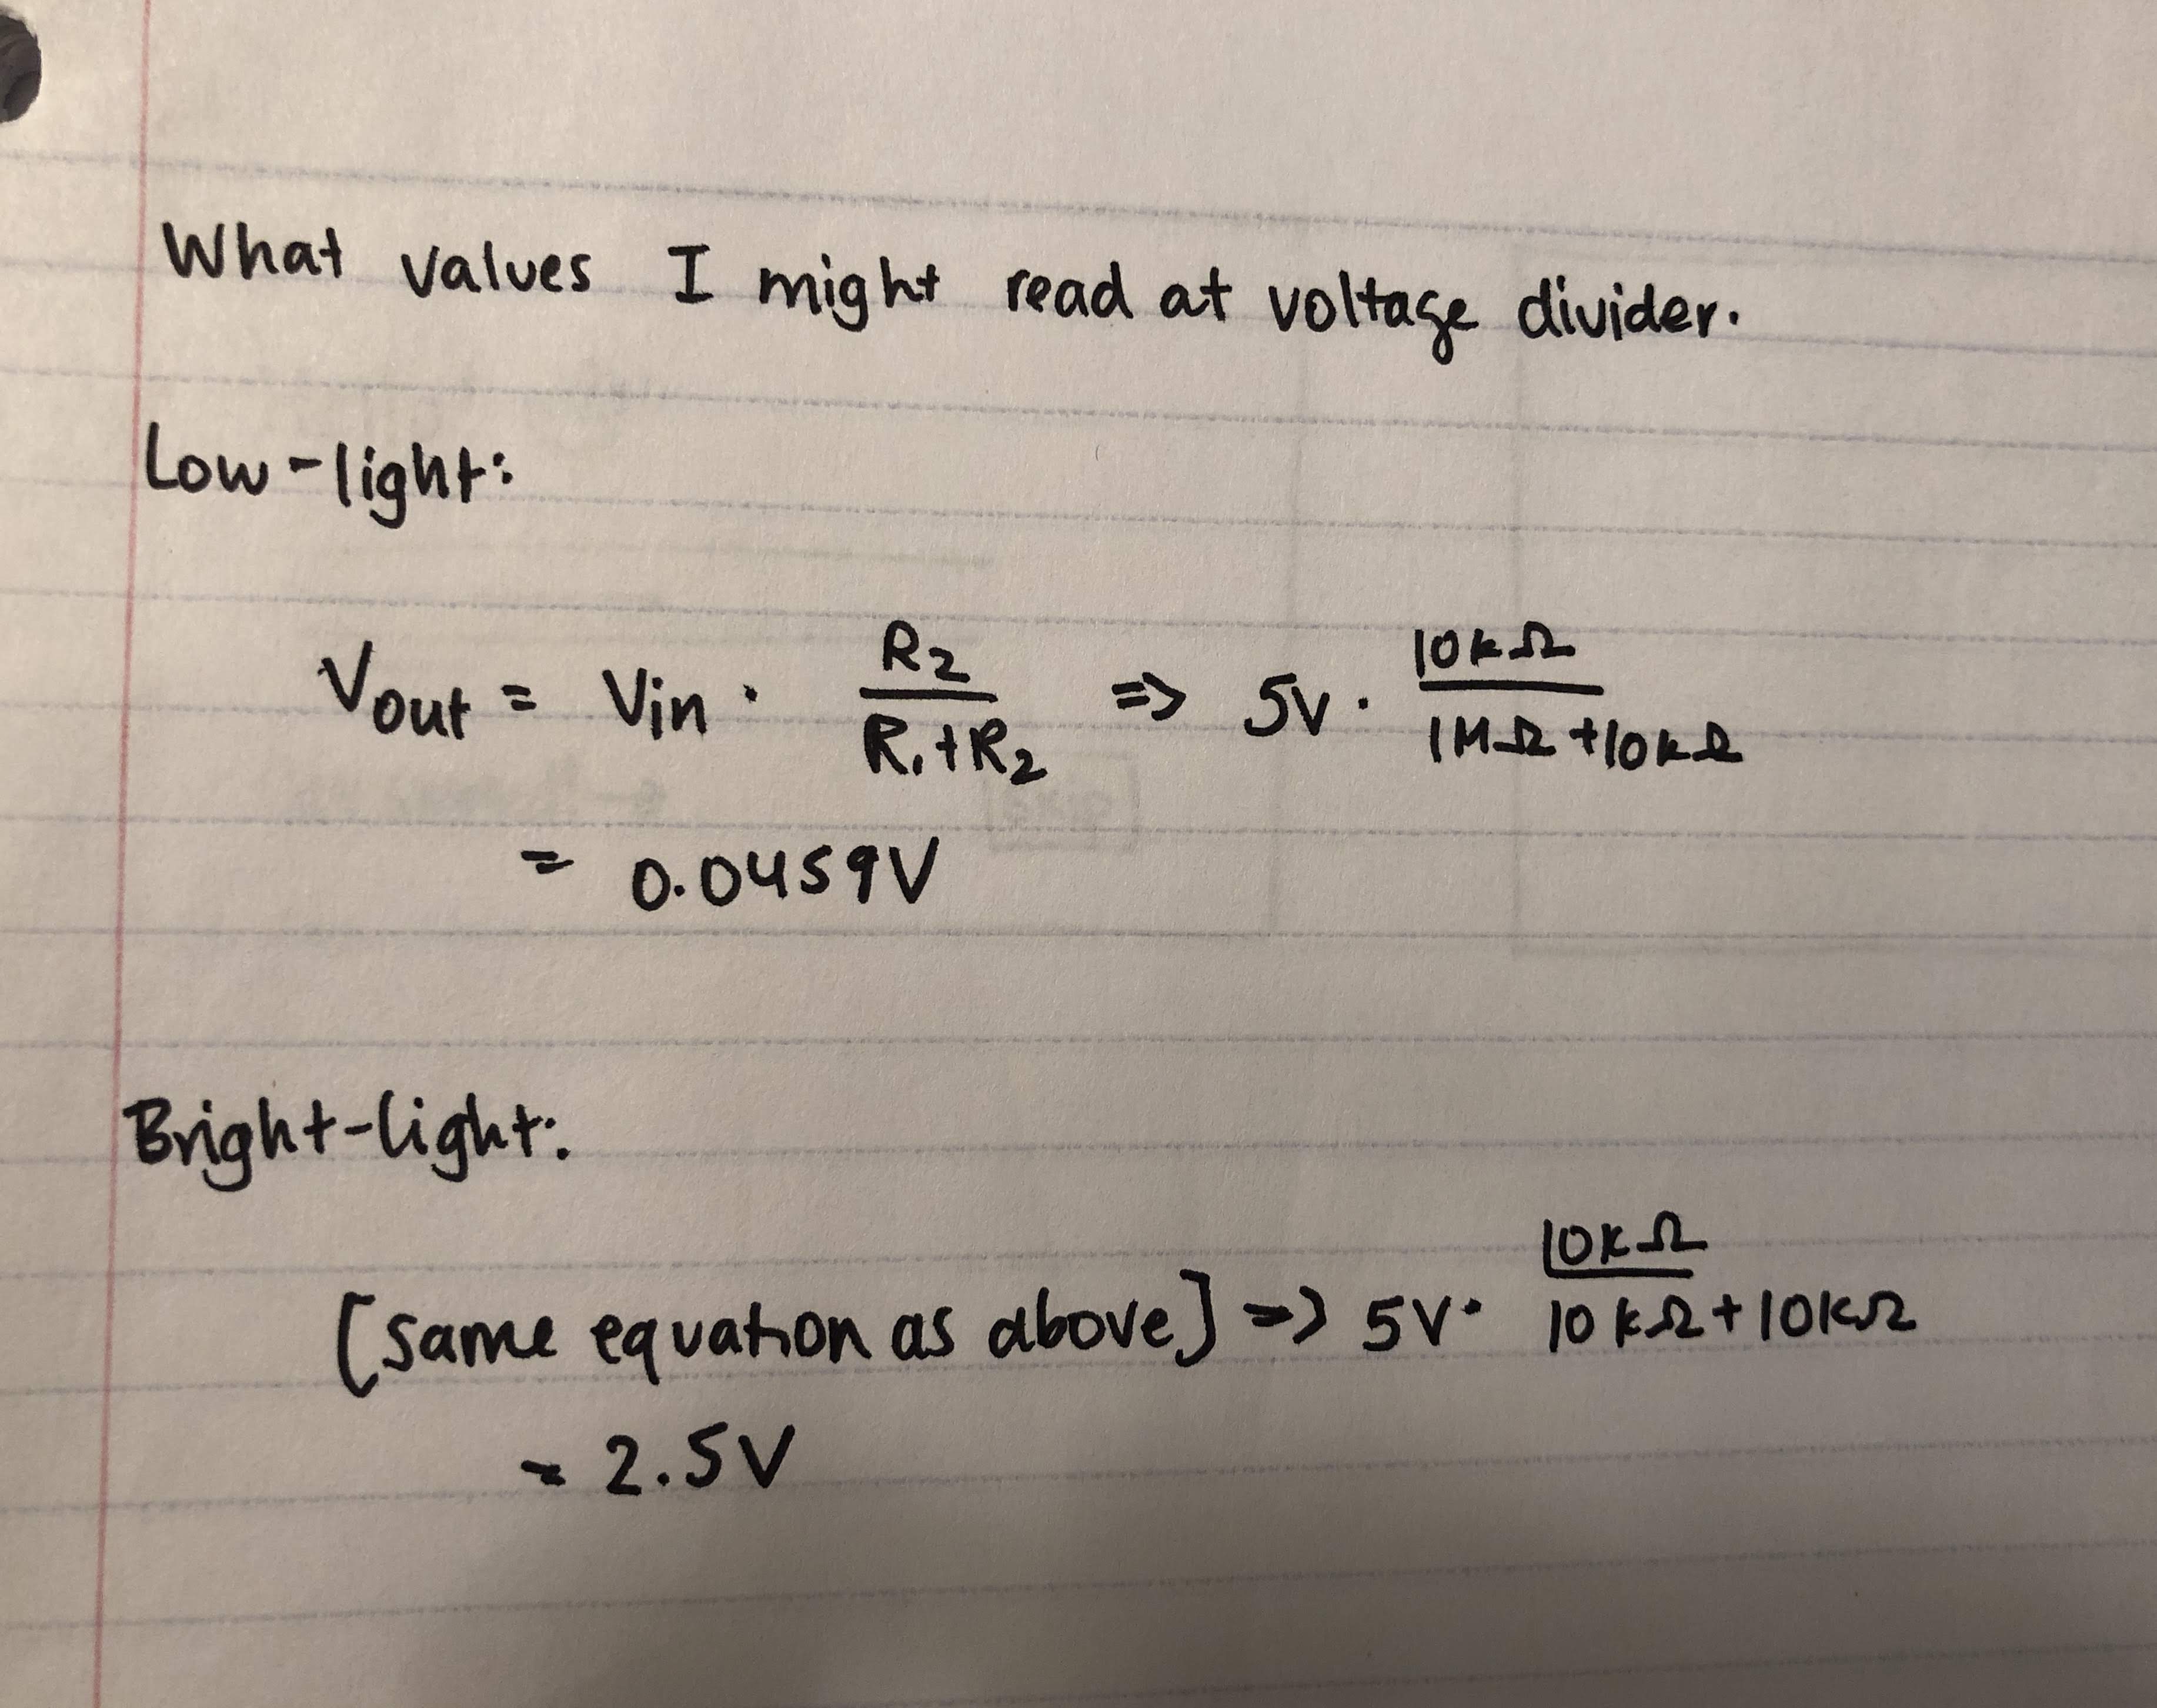 What values I might read at voltage divider.
Low-light:
Vout = Vin · R2/R1+R2 => 5V · 10kΩ/1MΩ+10kΩ
= 0.0459V
Bright-light:
[same equation as above] => 5V · 10kΩ/10kΩ+10kΩ
= 2.5V